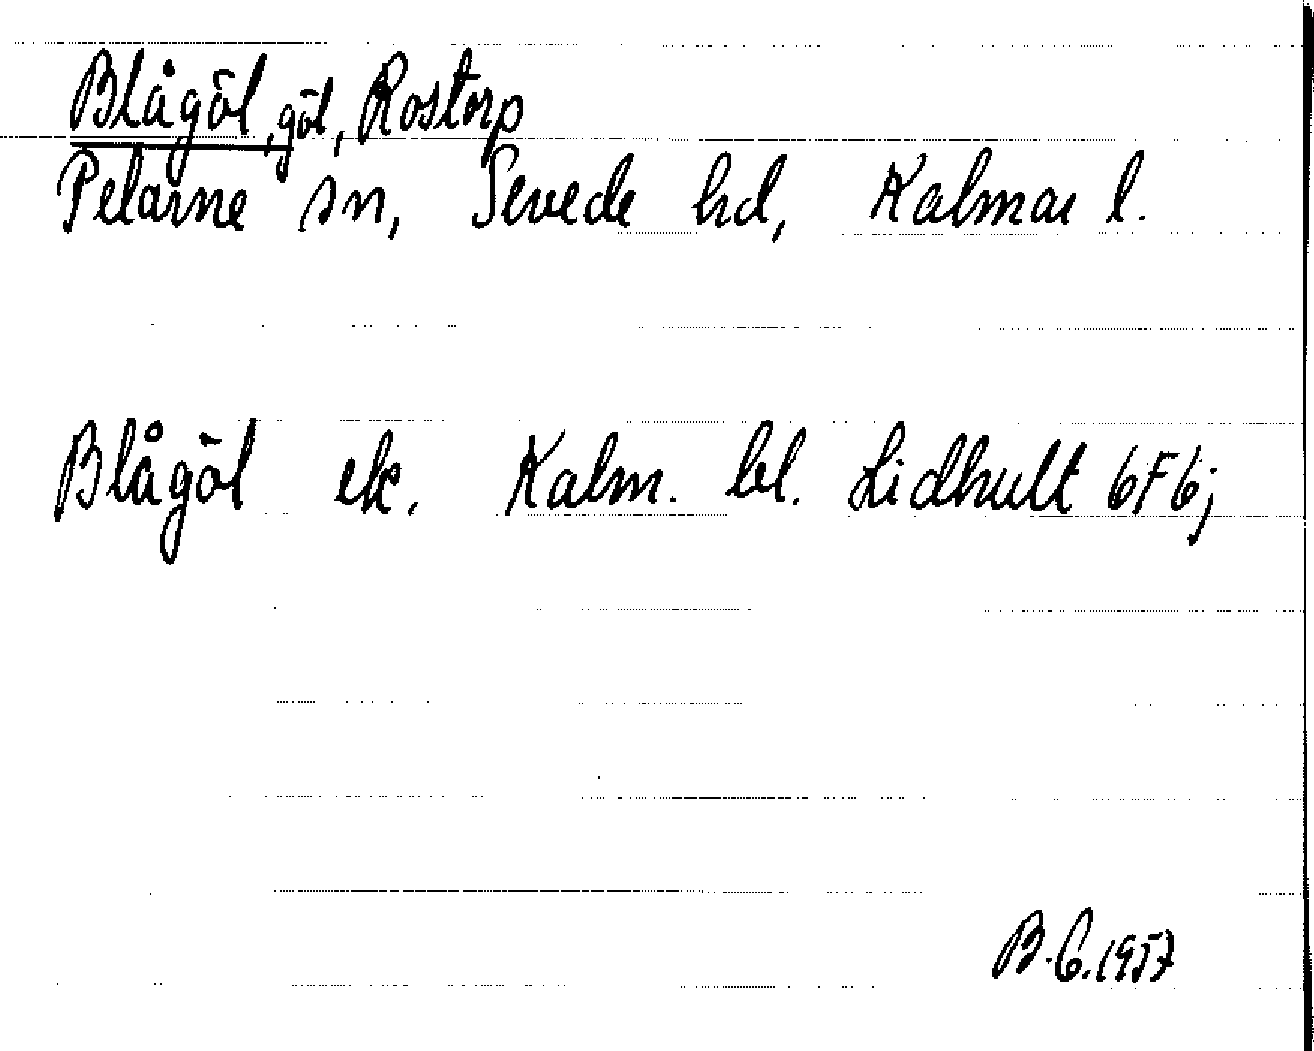 Blågöl, göl, Rostorp
Pelarne sn, Sevede hd, Kalmar l.
Blågöl ek. Kalm. bl. Lidhult 6F6;
B.C. 1957